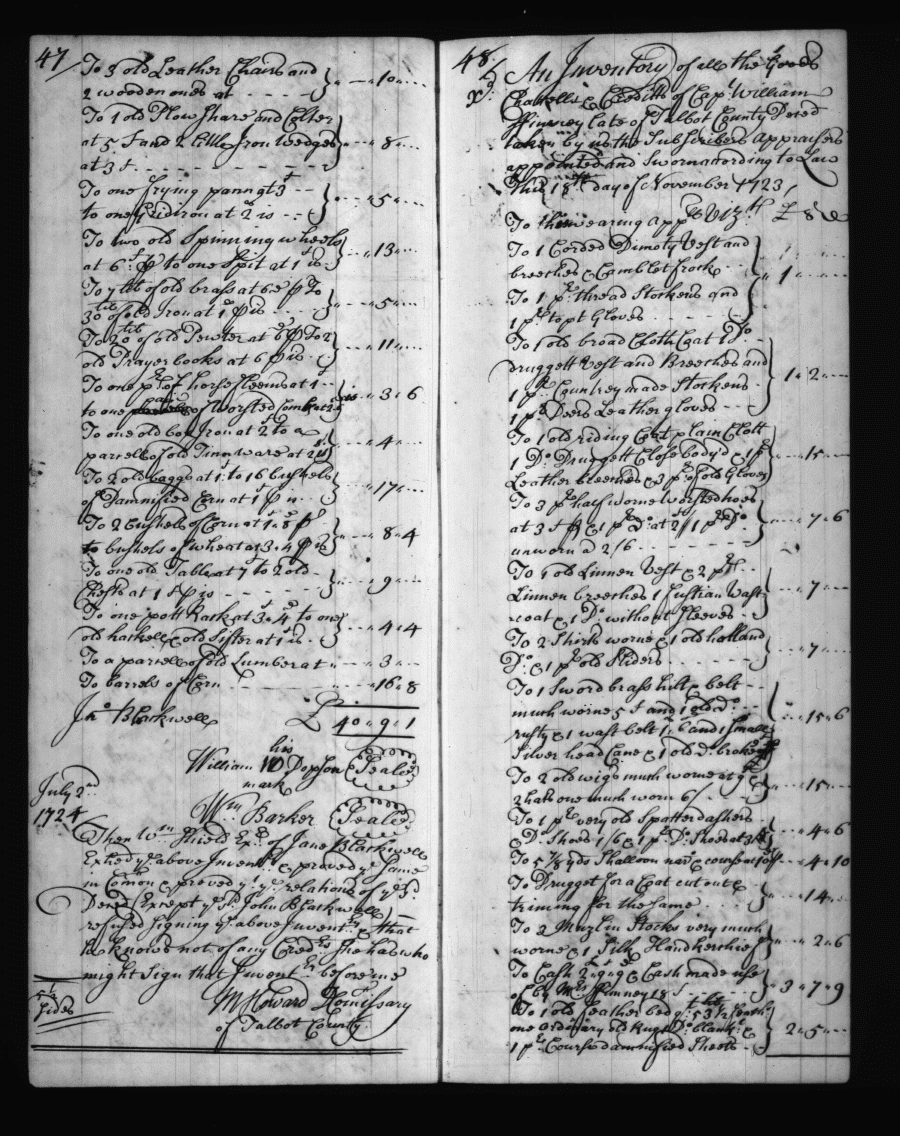 47
To 3 old Leather Chairs and
2 wooden ones at } " — " 10 " —
To 1 old Plow Share and Colter
at 5 s and 2 little Iron Wedges } " — " 8 " —
at 3 s
To one frying pann at 3 s
to one Gridiron at 2 is } " — " 5 " —
To two old Spinning wheels
at 6 s p to one Spit at 1 s is } " — " 13 " —
To 7 lb of old brass at 6 d p To
30 lb old Iron at 1 d p is } " — " 5 " —
To 20 lb of old Pewter at 6 d p To 2
old Prayer books at 6 p is } " — " 11 " —
To one pr of horse fleems at 1 s
to one of Worsted Combs at } " — " 3 " 6
To one old box Iron at 2 s to a
parcell of old Tinn ware at 2 s } " — " 4 " —
To 2 old baggs at 1 s to 16 bushels
of Dammified Corn at 1 s p is } " — " 17 " —
To 2 bushels of Corn at 1 " 8 p
to bushels of wheat at 3 " 4 p is } " — " 8 " 4
To one old Table at 7 s to 2 old
Chests at 1 s p is } " — " 9 " —
To one pott Rack at 3 " 4 to one
old & old Sifter at 1 s is } " — " 4 " 4
To a parcell of old Lumber at " — " 3 " —
To barrels of Corn " — " 16 " 8
Jno Blackwell £ 40 " 9 " 1
his
William W Dopson Sealed
mark
July 2d
1724
Wm Barker Sealed
Then Wm Shield Exr of Jane Blackwell
ye above Invent & proved ye same
in Comon & proved yt ye relations of ye sd
Deced Except ye sd John Blackwell
refused signing ye above Inventry & that
he knows not of any Credrs she had who
might sign that Inventry before me
M Howard Comissary
of Talbot County
5 1/2
sides
48
An Inventory of all the Goods
Chattells & Creditts of Capt William
Finney late of Talbot County Deced
taken by us the Subscribers Appraisers
appointed and Sworn according to Law
This 18th day of November 1723,
Vizt £ s d
To the wearing app
To 1 Corded Dimoty Vest and
breeches & Camblot frock
To 1 pr thread Stockens and
1 pr topt Gloves } " 1 " — " —
To 1 old broad Cloth Coat 1 Do
druggett Vest and Breeches and
1 pr Countrey made Stockens
1 pr Deers Leather gloves } 1 " 2 " —
To 1 old riding Coat plain Cloth
1 Do Druggett Close body'd & 1 pr
Leather breeches & 3 pr of old Gloves } " — " 15 " —
To 3 pr half worne worsted hoes
at 3 s & 1 pr Do at 2/ 1 pr Do
unworn'd 2/6 } " — " 7 " 6
To 1 old Linnen Vest & 2 pr
Linnen breeches 1 fustian Wast
coat & 1 Do without sleeves } " — " 7 " —
To 2 Shirts worne & 1 old holland
Do & 1 pr old Sliders } " — " 7 " —
To 1 Sword brass hilt & belt
much worne 5 s and 1 old Do
rusty & 1 wast belt 1 " 6 and 1 small
Silver head Cane & 1 old Do broken } " — " 15 " 6
To 2 old wigs much worne at 9 s &
2 hats one much worn 6/ } " — " 15 " —
To 1 pr very old Spatterdashers
& Do Shoes 1/6 & 1 pr Do Shoes at 3/ } " — " 4 " 6
To 5 7/8 yds Shalloon narr & course " — " 4 " 10
To Drugget for a Coat cut out &
triming for the same } " — " 14 " —
To 2 Muzlin Stocks very much
worne & 1 Silk Handkerchief } " — " 2 " 6
To Cash 2 " 9 " 9 & Cash made use
of by Mrs Finney 18 s } " 3 " 7 " 9
To 1 old feather bed qt 53 1/2 lb feathr
one ordinary old Rugg Do blankt &
1 pr Course dammified Sheets } 2 " 5 " —